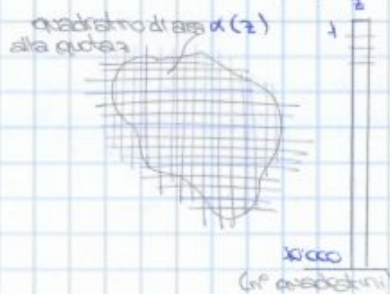 quadratino di area α(z)
alla quota z
z
1
10'000
(n° quadratini)